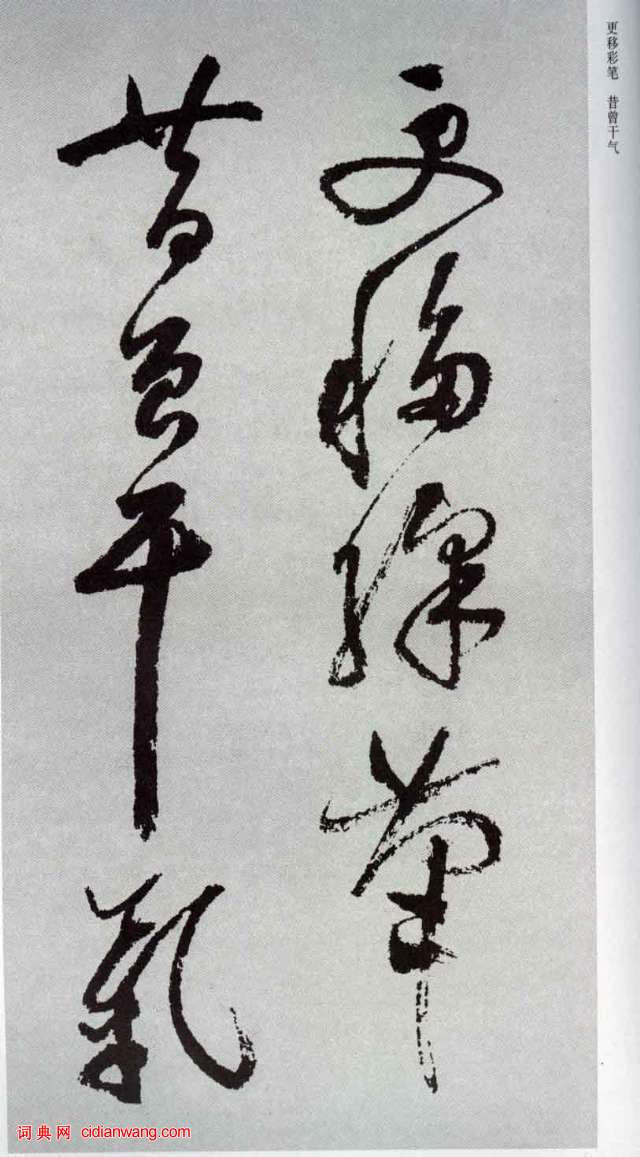 更移彩笔　昔曾干气
更移綵筆
昔曾干氣
词典网 cidianwang.com